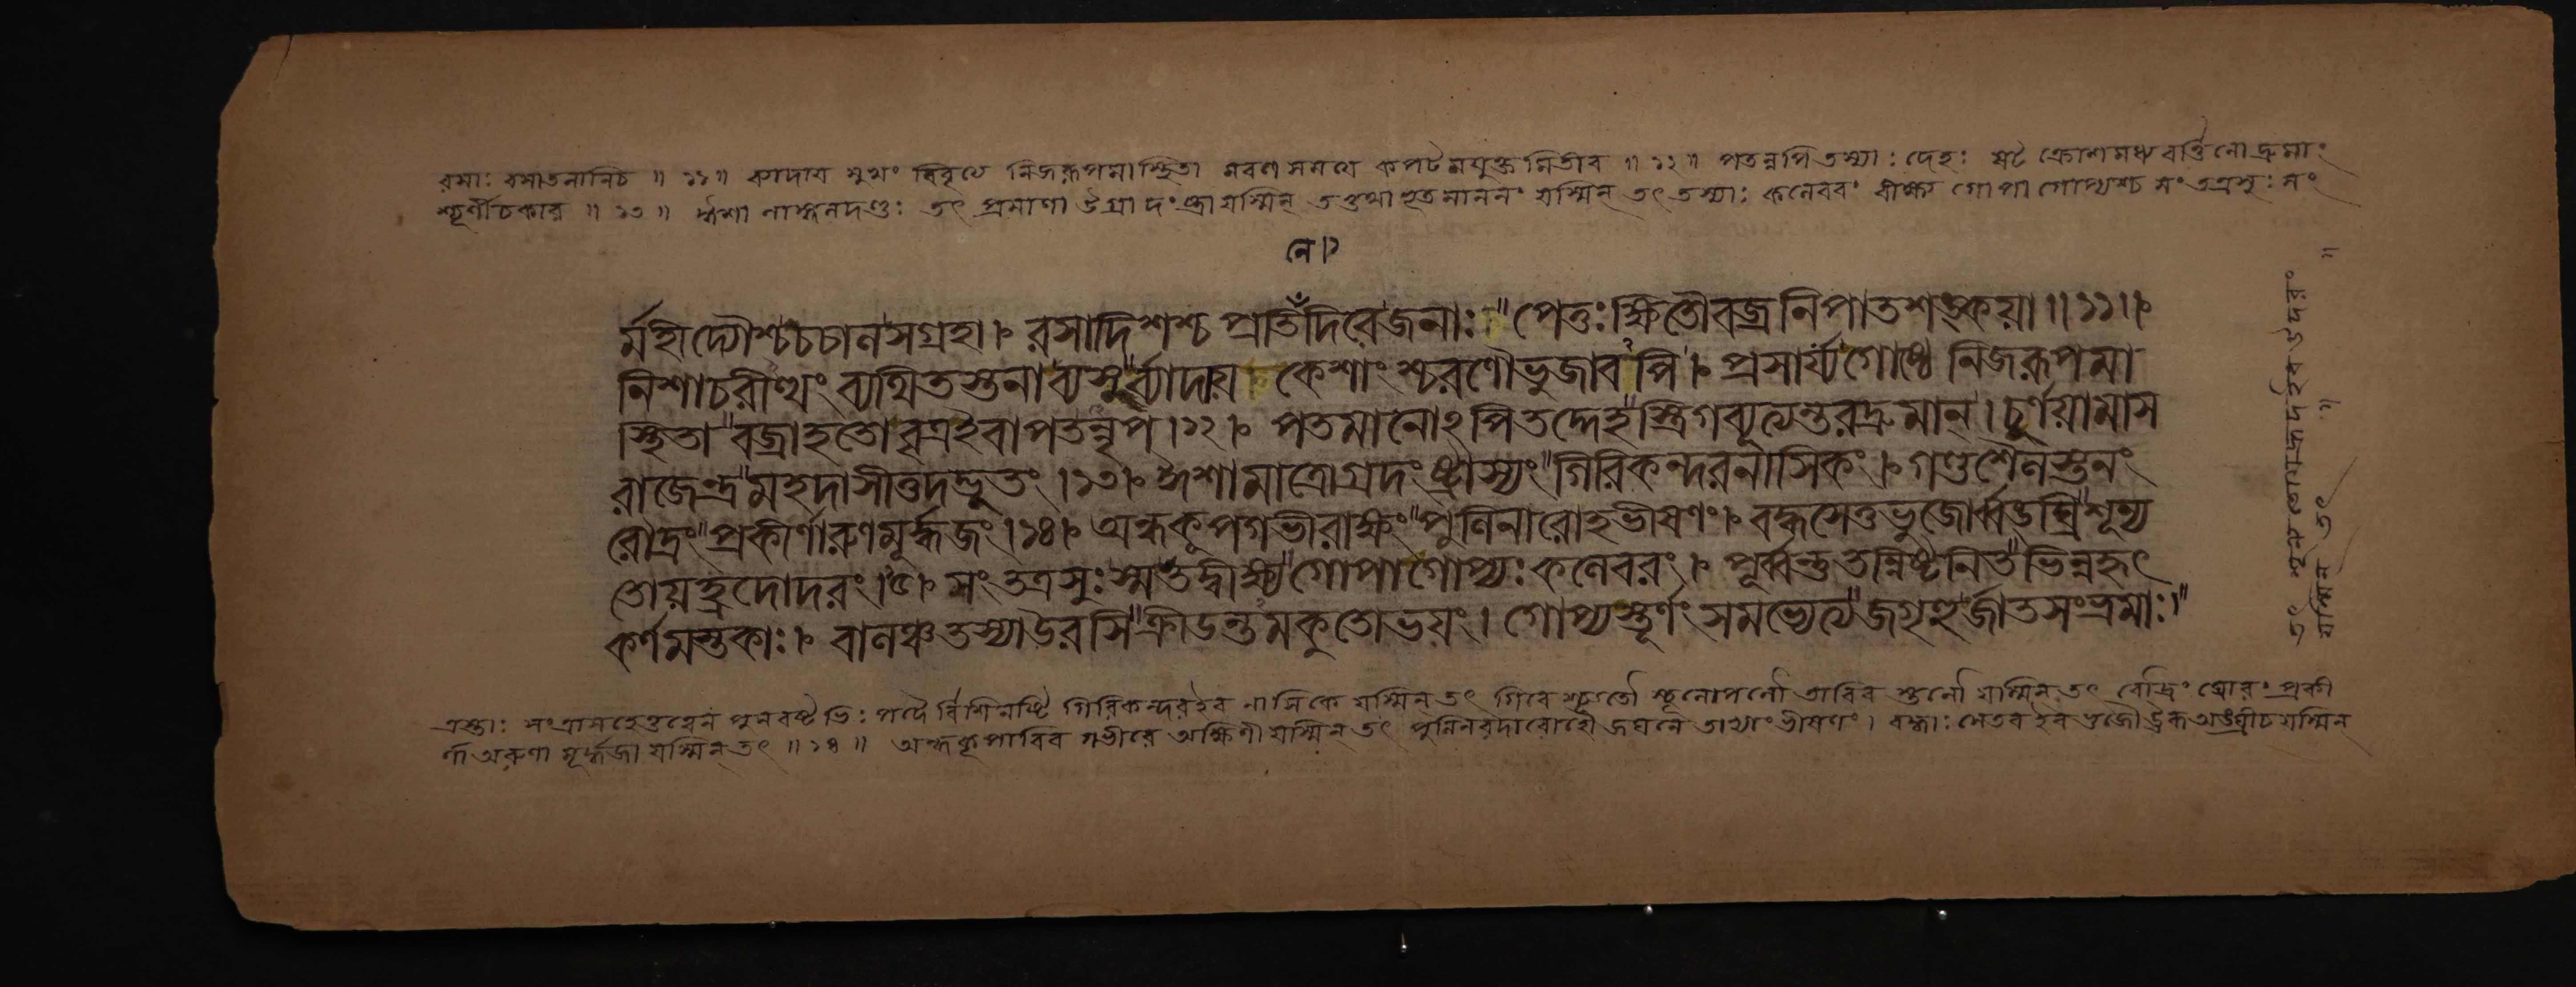 রসাঃ রসাতলানিচ ॥ ১১ ॥ ব্যাদায় মুখং বিবৃত্য নিজরূপমাস্থিতা মরণসময়ে কপটমযুক্তমিতীব ॥ ১২ ॥ পতন্নপি তস্যাঃ দেহঃ ষট ক্রোশমধ্যবর্ত্তিনো দ্রুমাং
শ্চূর্ণীচকার ॥ ১৩ ॥ ঈশা লাঙ্গলদণ্ডঃ তৎ প্রমাণা উগ্রা দংষ্ট্রা যস্মিন্ তত্তথাভূতমাননং যস্মিন্ তৎ তস্যাঃ কলেবরং বীক্ষ্য গোপা গোপ্যশ্চ সংতত্রসুঃ সং
লে।১
র্মহীদ্যৌশ্চচচালসগ্রহা।১ রসাদিশশ্চ প্রতিঁদিরেজনাঃ॥পেতুঃক্ষিতৌবজ্রনিপাতশঙ্কয়া॥১১।১
নিশাচরীত্থং ব্যথিতস্তনাব্যসুর্ব্যাদায় কেশাংশ্চরণৌভুজাবপি।১ প্রসার্য্যগোষ্ঠে নিজরূপমা
স্থিতা॥বজ্রাহতোবৃত্রইবাপতন্নৃপ।১২।১ পতমানোঽপিতদ্দেহ॥স্ত্রিগব্যূত্যন্তরদ্রুমান্।চূর্ণয়ামাস
রাজেন্দ্র॥মহদাসীত্তদদ্ভুতং।১৩।১ ঈশামাত্রোগ্রদংষ্ট্রাস্যং॥গিরিকন্দরনাসিকং।১গণ্ডশৈলস্তনং
রৌদ্রং॥প্রকীর্ণারুণমূর্দ্ধজং।১৪।১ অন্ধকূপগভীরাক্ষং॥পুলিনারোহভীষণং।১ বদ্ধসেতুভুজোর্ব্বঙ্ঘ্রি॥শূন্য
তোয়হ্রদোদরং।১৫।১ সংতত্রসুঃস্মতদ্বীক্ষ্য॥গোপাগোপ্যঃকলেবরং।১ পূর্ব্বন্তুতন্নিষ্টনিত॥ভিন্নহৃৎ
কর্ণমস্তকাঃ।১ বালঞ্চতস্যাউরসি॥ক্রীডন্তমকুতোভয়ং।গোপ্যস্তূর্ণং সমভ্যেত্য॥জগৃহুর্জাতসংভ্রমাঃ।॥
ত্রস্তাঃ সংত্রাসহেতুত্বেন পুনরষ্টভিঃ পদৈর্বিশিনষ্টি গিরিকন্দরইব নাসিকে যস্মিন্ তৎ গিরেশ্চ্যুতৌ স্থূলোপলৌ তাবিব স্তনৌ যস্মিন্ তৎ রৌদ্রং ঘোরং প্রকী
র্ণা অরুণা মূর্দ্ধজা যস্মিন্ তৎ ॥ ১৪ ॥ অন্ধকূপাবিব গভীরে অক্ষিণী যস্মিন্ তৎ পুলিনবদারোহৌ জঘনে তাভ্যাং ভীষণং। বদ্ধাঃ সেতব ইব ভুজৌ উরূ অঙ্ঘ্রীচ যস্মিন্
তৎ শূন্য তোয়হ্রদইব উদরং
যস্মিন্ তৎ ॥